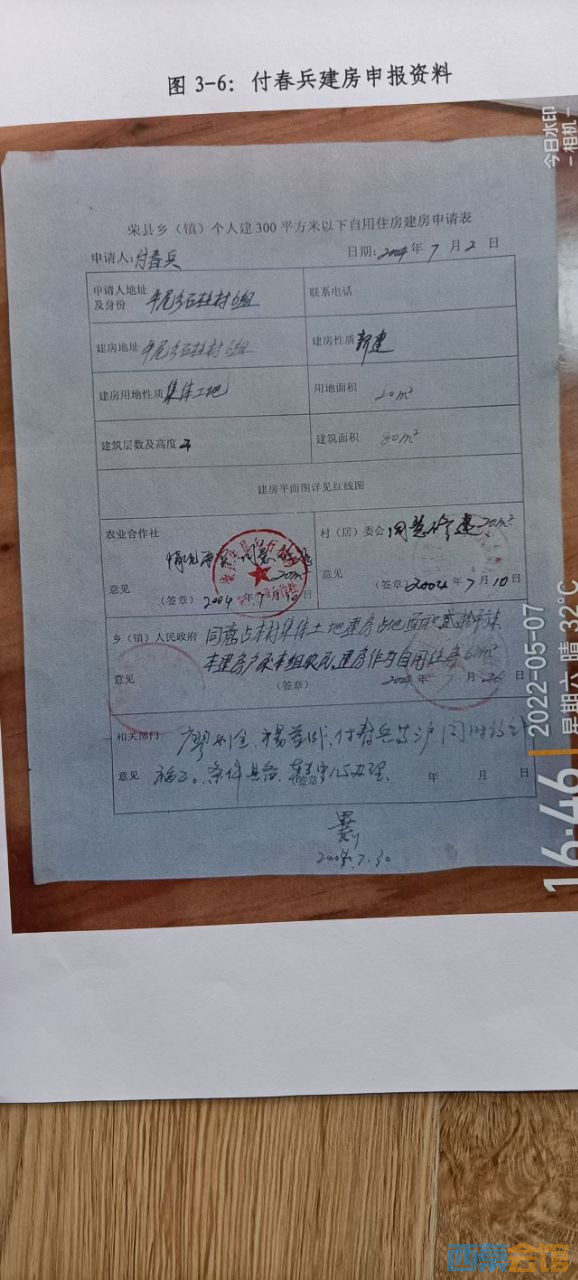 图 3-6：付春兵建房申报资料
今日水印
-相机-
荣县乡（镇）个人建300平方米以下自用住房建房申请表
申请人：付春兵 日期：2004年7月2日
申请人地址及身份 牟尼乡石柱村6组 联系电话
建房地址 牟尼乡石柱村6组 建房性质 新建
建房用地性质 集体土地 用地面积 20m²
建筑层数及高度 建筑面积 80m²
建房平面图详见红线图
农业合作社 村（居）委会 同意修建20m²
情况 同意 20m²
意见 意见
（签章）2004年7月10日 （签章）2004年7月10日
乡（镇）人民政府 同意占本村集体土地建房占地面积贰拾平方米
本建房户系本组农民，建房作为自用住房60m²
意见 （签章） 年7月26日
相关部门 付春兵 户
意见 条件具备 办理 年 月 日
7.30
2022-05-07
星期六 晴 32℃
16:46
西秦会馆